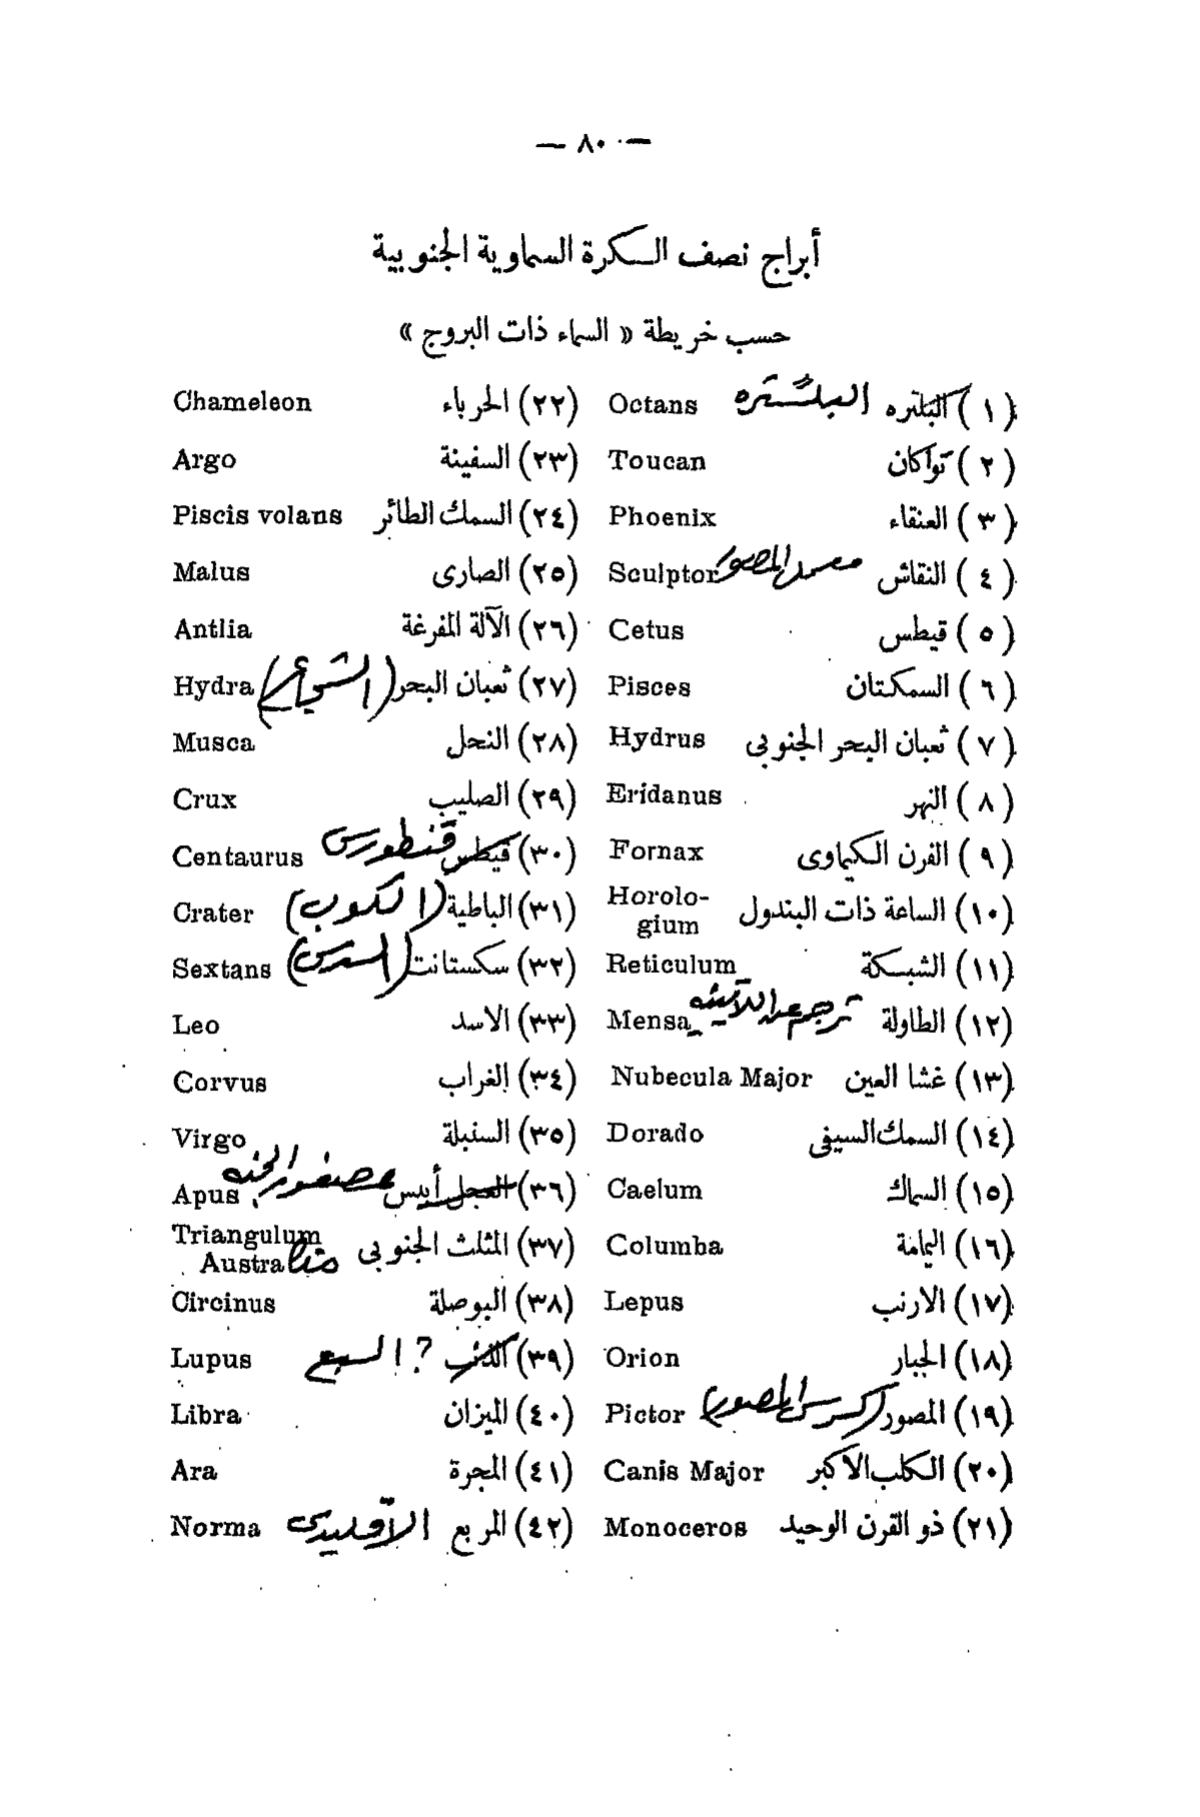 — ٨٠ —
أبراج نصف الكرة السماوية الجنوبية
حسب خريطة « السماء ذات البروج »
(١) البلتره البلستره Octans
(٢) توآكان Toucan
(٣) العنقاء Phoenix
(٤) النقاش معمل المصور Sculptor
(٥) قيطس Cetus
(٦) السمكتان Pisces
(٧) ثعبان البحر الجنوبى Hydrus
(٨) النهر Eridanus
(٩) الفرن الكيماوى Fornax
(١٠) الساعة ذات البندول Horolo-
gium
(١١) الشبكة Reticulum
(١٢) الطاولة ترجم عن اللاتينيه Mensa
(١٣) غشا العين Nubecula Major
(١٤) السمك السيفى Dorado
(١٥) السماك Caelum
(١٦) اليمامة Columba
(١٧) الارنب Lepus
(١٨) الجبار Orion
(١٩) المصور (كرسى المصور) Pictor
(٢٠) الكلب الاكبر Canis Major
(٢١) ذو القرن الوحيد Monoceros
(٢٢) الحرباء Chameleon
(٢٣) السفينة Argo
(٢٤) السمك الطائر Piscis volans
(٢٥) الصارى Malus
(٢٦) الآلة المفرغة Antlia
(٢٧) ثعبان البحر (الشجاع) Hydra
(٢٨) النحل Musca
(٢٩) الصليب Crux
(٣٠) قيطس قنطورس Centaurus
(٣١) الباطية (الكوب) Crater
(٣٢) سكستانت (السدس) Sextans
(٣٣) الاسد Leo
(٣٤) الغراب Corvus
(٣٥) السنبلة Virgo
(٣٦) العجل أبيس عصفور الجنه Apus
(٣٧) المثلث الجنوبى Triangulum
Austra
(٣٨) البوصلة Circinus
(٣٩) الذئب ? السبع Lupus
(٤٠) الميزان Libra
(٤١) المجرة Ara
(٤٢) المربع الاقليدى Norma